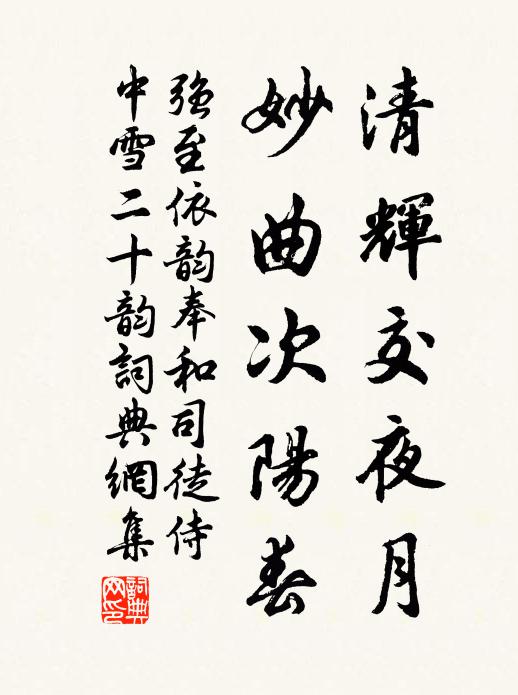 清輝交夜月
妙曲次陽春
強至依韵奉和司徒侍
中雪二十韵詞典網集
詞典
网印